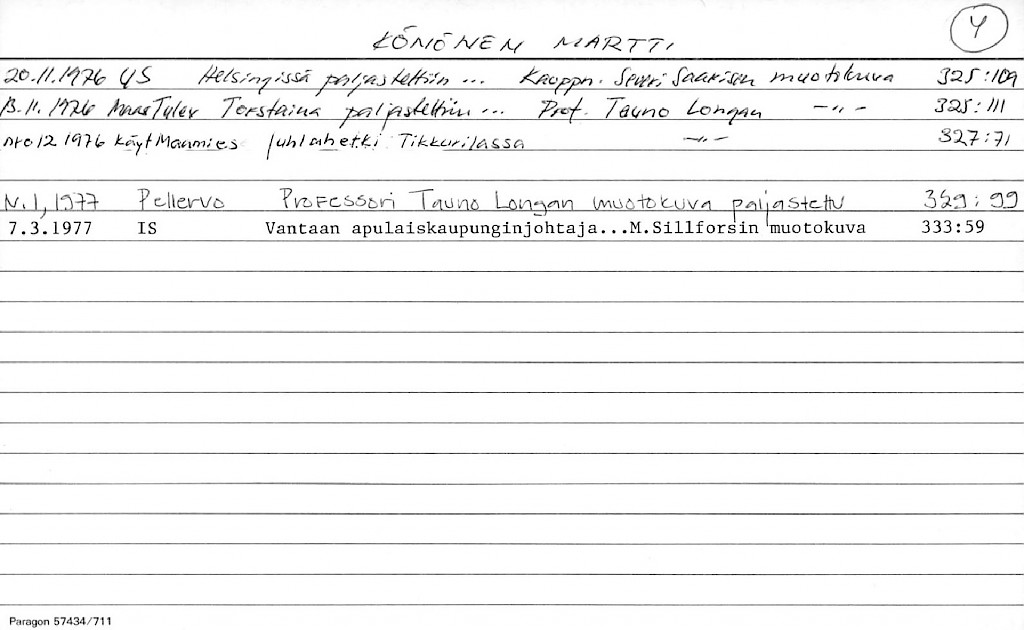 KÖNÖNEN MARTTI
4
20.11.1976 US Helsingissä paljastettiin ... Kauppn. Severi Saarisen muotokuva 325:109
13.11.1976 MaasTulev Torstaina paljastettiin ... Prof. Tauno Longan —"— 325:111
nro 12 1976 KäytMaamies Juhlahetki Tikkurilassa —"— 327:71
N. 1, 1977 Pellervo Professori Tauno Longan muotokuva paljastettu 329:99
7.3.1977 IS Vantaan apulaiskaupunginjohtaja...M.Sillforsin muotokuva 333:59
Paragon 57434/711